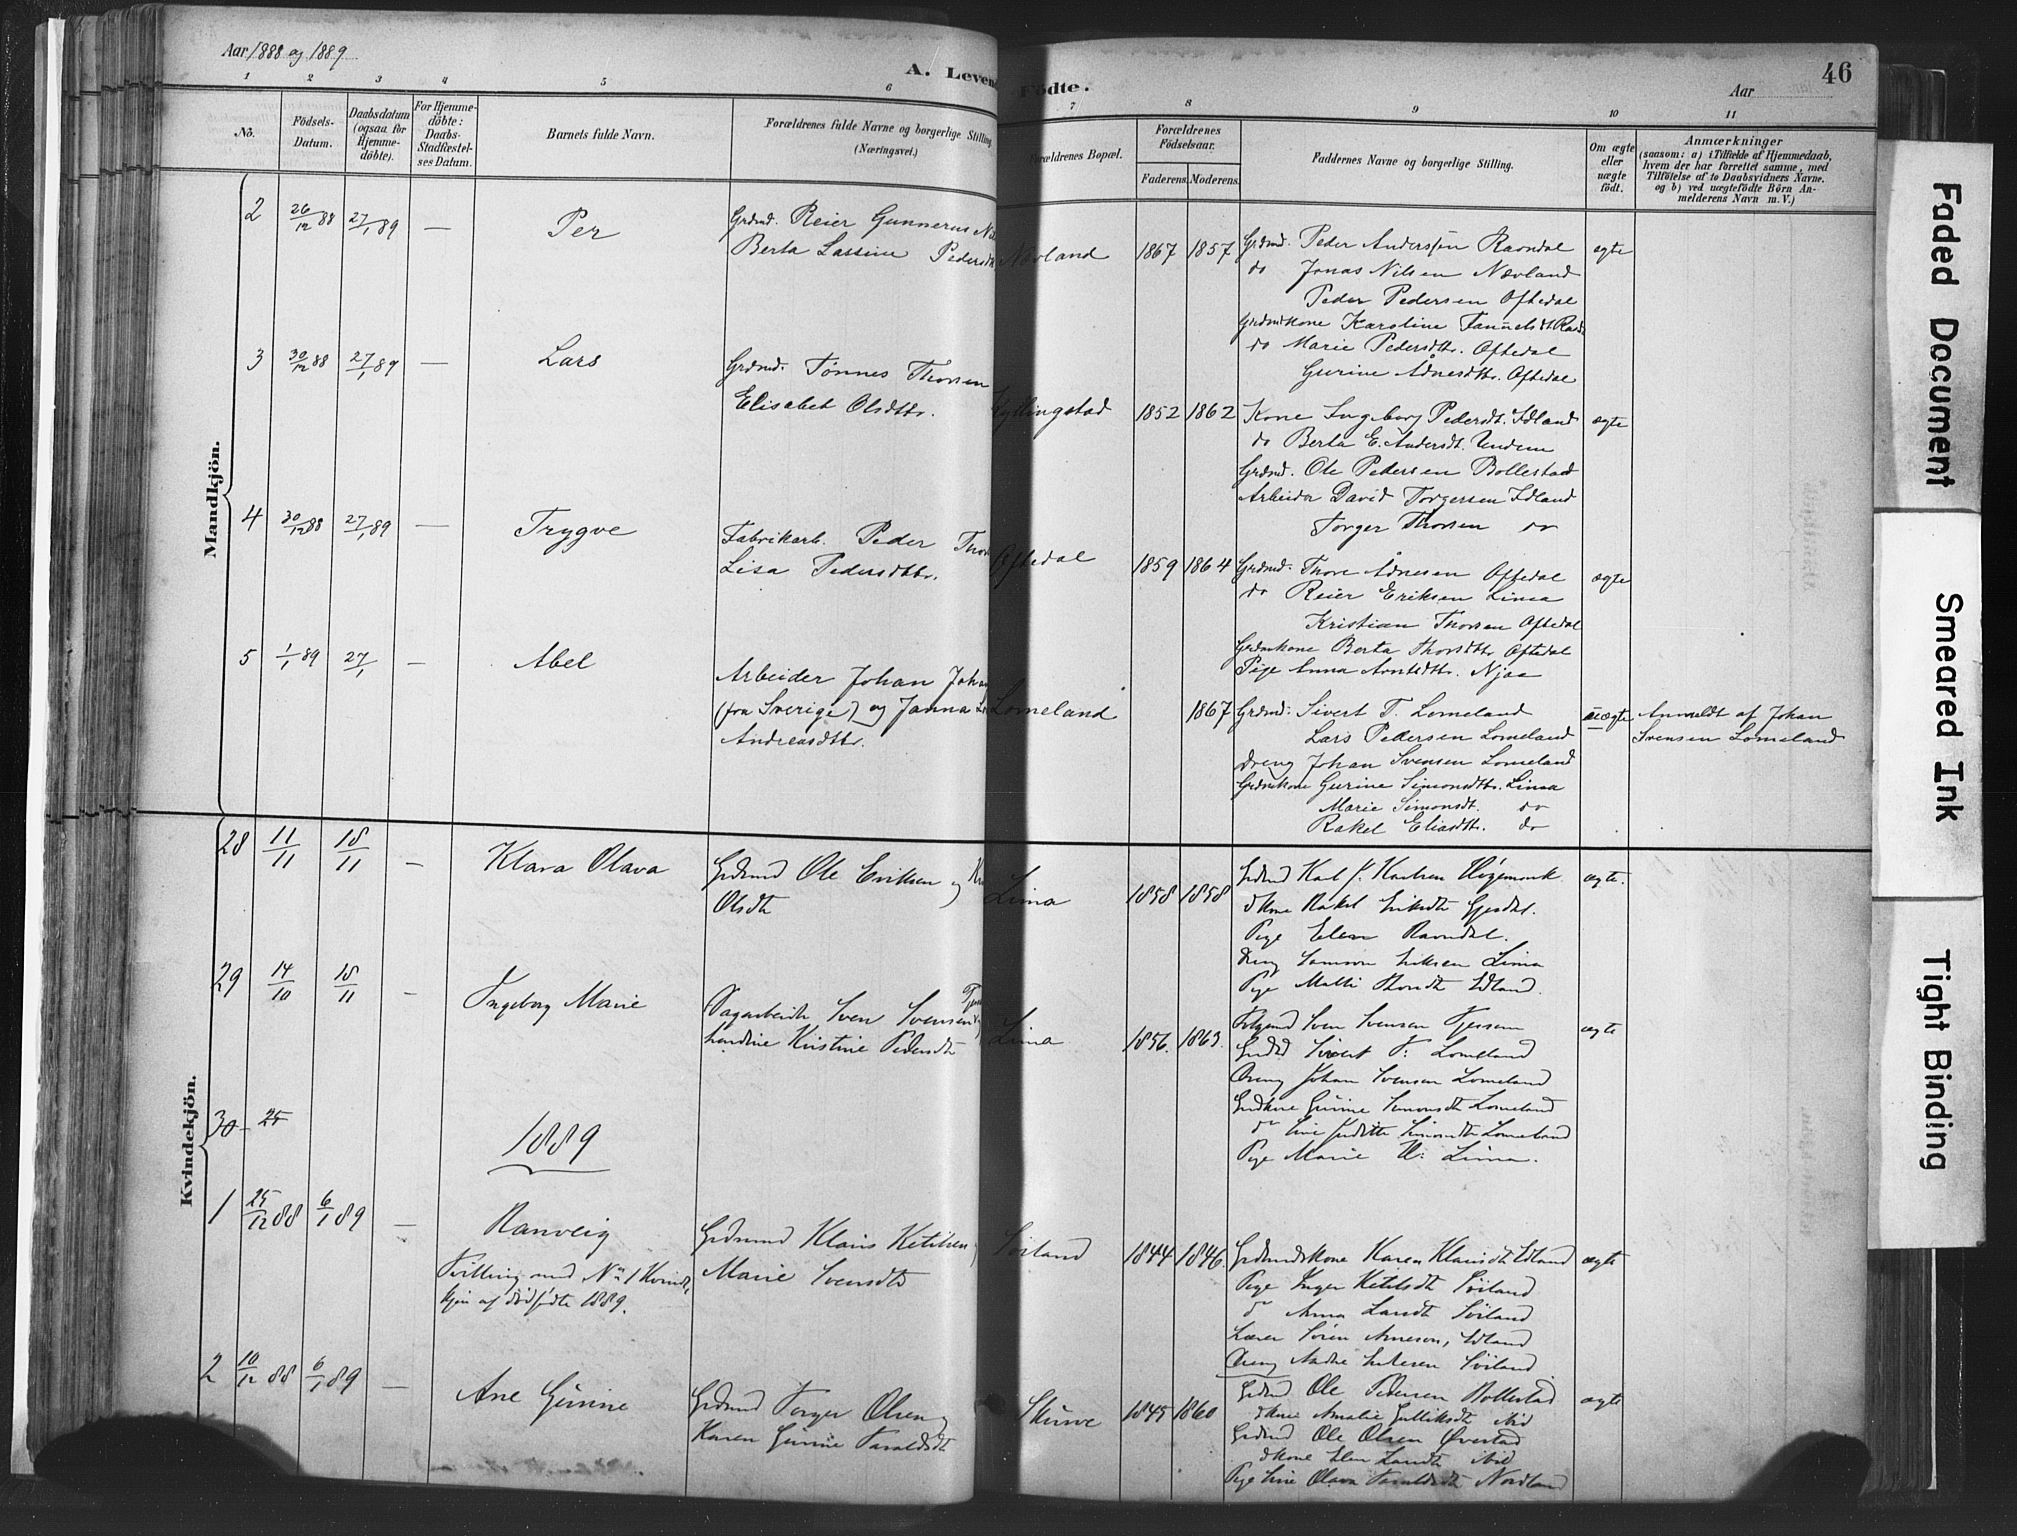 Aar 1888 og 1889
A. Levende Födte.
46
Aar
1 2 3 4 5 6 7 8 9 10 11
No.
Födsels-
Datum.
Daabsdatum
(ogsaa for
Hjemme-
döbte).
For Hjemme-
döbte:
Daabs-
Stadfæstel-
ses Datum.
Barnets fulde Navn.
Forældrenes fulde Navne og borgerlige Stilling
(Næringsvei.)
Forældrenes Bopæl.
Forældrenes
Födselsaar.
Faderens. Moderens.
Faddernes Navne og borgerlige Stilling.
Om ægte
eller
uægte
födt.
Anmærkninger
(saasom: a) i Tilfælde af Hjemmedaab,
hvem der har forrettet samme, med
Tilföielse af to Daabsvidners Navne.
og b) ved uægtefödte Börn An-
melderens Navn m. V.)
Mandkjön.
2 26/12 88 27/1 89 — Per
Grdmd. Reier Gunnerus
Berta Lassine Pedersdt
Nævland 1867 1857
Grdmd. Peder Anderssen Ravndal
do Jonas Nilsen Nævland
Peder Pedersen Oftedal
Grdmdkone Karoline
do Marie Pedersdtr. Oftedal
Gurine Ådnesdtr. Oftedal
ægte
3 30/12 88 27/1 89 — Lars
Grdmd. Tønnes Thorsen
Elisabet Olsdtr.
Kyllingstad 1852 1862
Kone Ingeborg Pedersdt. Idland
do Berta E. Andersdt. Undem
Grdmd. Ole Pedersen Bollestad
Arbeider David Torgersen Idland
Torger Thorsen do
ægte
4 30/12 88 27/1 89 — Trygve
Fabrikarb. Peder
Lisa Pedersdtr.
Oftedal 1859 1864
Grdmd. Thore Ådnesen Oftedal
do Reier Eriksen Lima
Kristian Thorsen Oftedal
Grdmkone Berta Thorsdtr Oftedal
Pige Anna Njaa
ægte
5 1/1 89 27/1 — Abel
Arbeider Johan
(fra Sverige) og Janna
Andreasdtr.
Lomeland 1867
Grdmd. Sivert T. Lomeland
Lars Pedersen Lomeland
dreng Johan Svensen Lomeland
Grdmkone Gurine Simonsdtr. Lima
Marie Simonsdt. do
Rakel Eliasdtr. do
uægte
Anmeldt af Johan
Svensen Lomeland
Kvindekjön.
28 11/11 18/11 — Klara Olava
Grdmd Ole Eriksen og
Olsdt
Lima 1858 1858
Grdmd Karl Karlsen Høgemark
dkone Rakel Eriksdt Gjesdal.
Pige Elen Ravndal.
Dreng Samson Eriksen Lima
Pige Malli Thorsdt Idland.
ægte.
29 14/10 18/11 — Ingeborg Marie
Dagarbeider Sven Svensen
Kristine Pedersdt
Lima 1856. 1863.
Sven Svensen
Grdmd Sivert T. Lomeland
Dreng Johan Svensen Lomeland
Grdkone Gurine Simonsdt Lomeland
do Simonsdt Lomeland
Pige Marie Lima.
ægte
30 25
1889
1 25/12 88 6/1 89 — Ranveig
Tvilling med No 1 Kvinde-
kjön af dödfödte 1889.
Grdmd Klaus Ketilsen
Marie Svensdt
Søiland 1844 1846.
Grdmandskone Karen Klausdt Idland
Pige Inger Ketilsdt Søiland
do Anna Søiland
Lærer Sören Arneson, Idland
Dreng Søiland
ægte
2 10/12 88 6/1 89 — Ane Gurine
Grdmd Torger Olsen
Karen Gurine Taraldsdt
Skurve 1845 1860
Grdmd Ole Pedersen Bollestad
dkone Amalie Gulliksdt ibid
Grdmd Ole Olsen Øvestad
dkone Elen ibid
Pige Line Olava Taraldsdt Nordland
ægte
Faded Document
Smeared Ink
Tight Binding